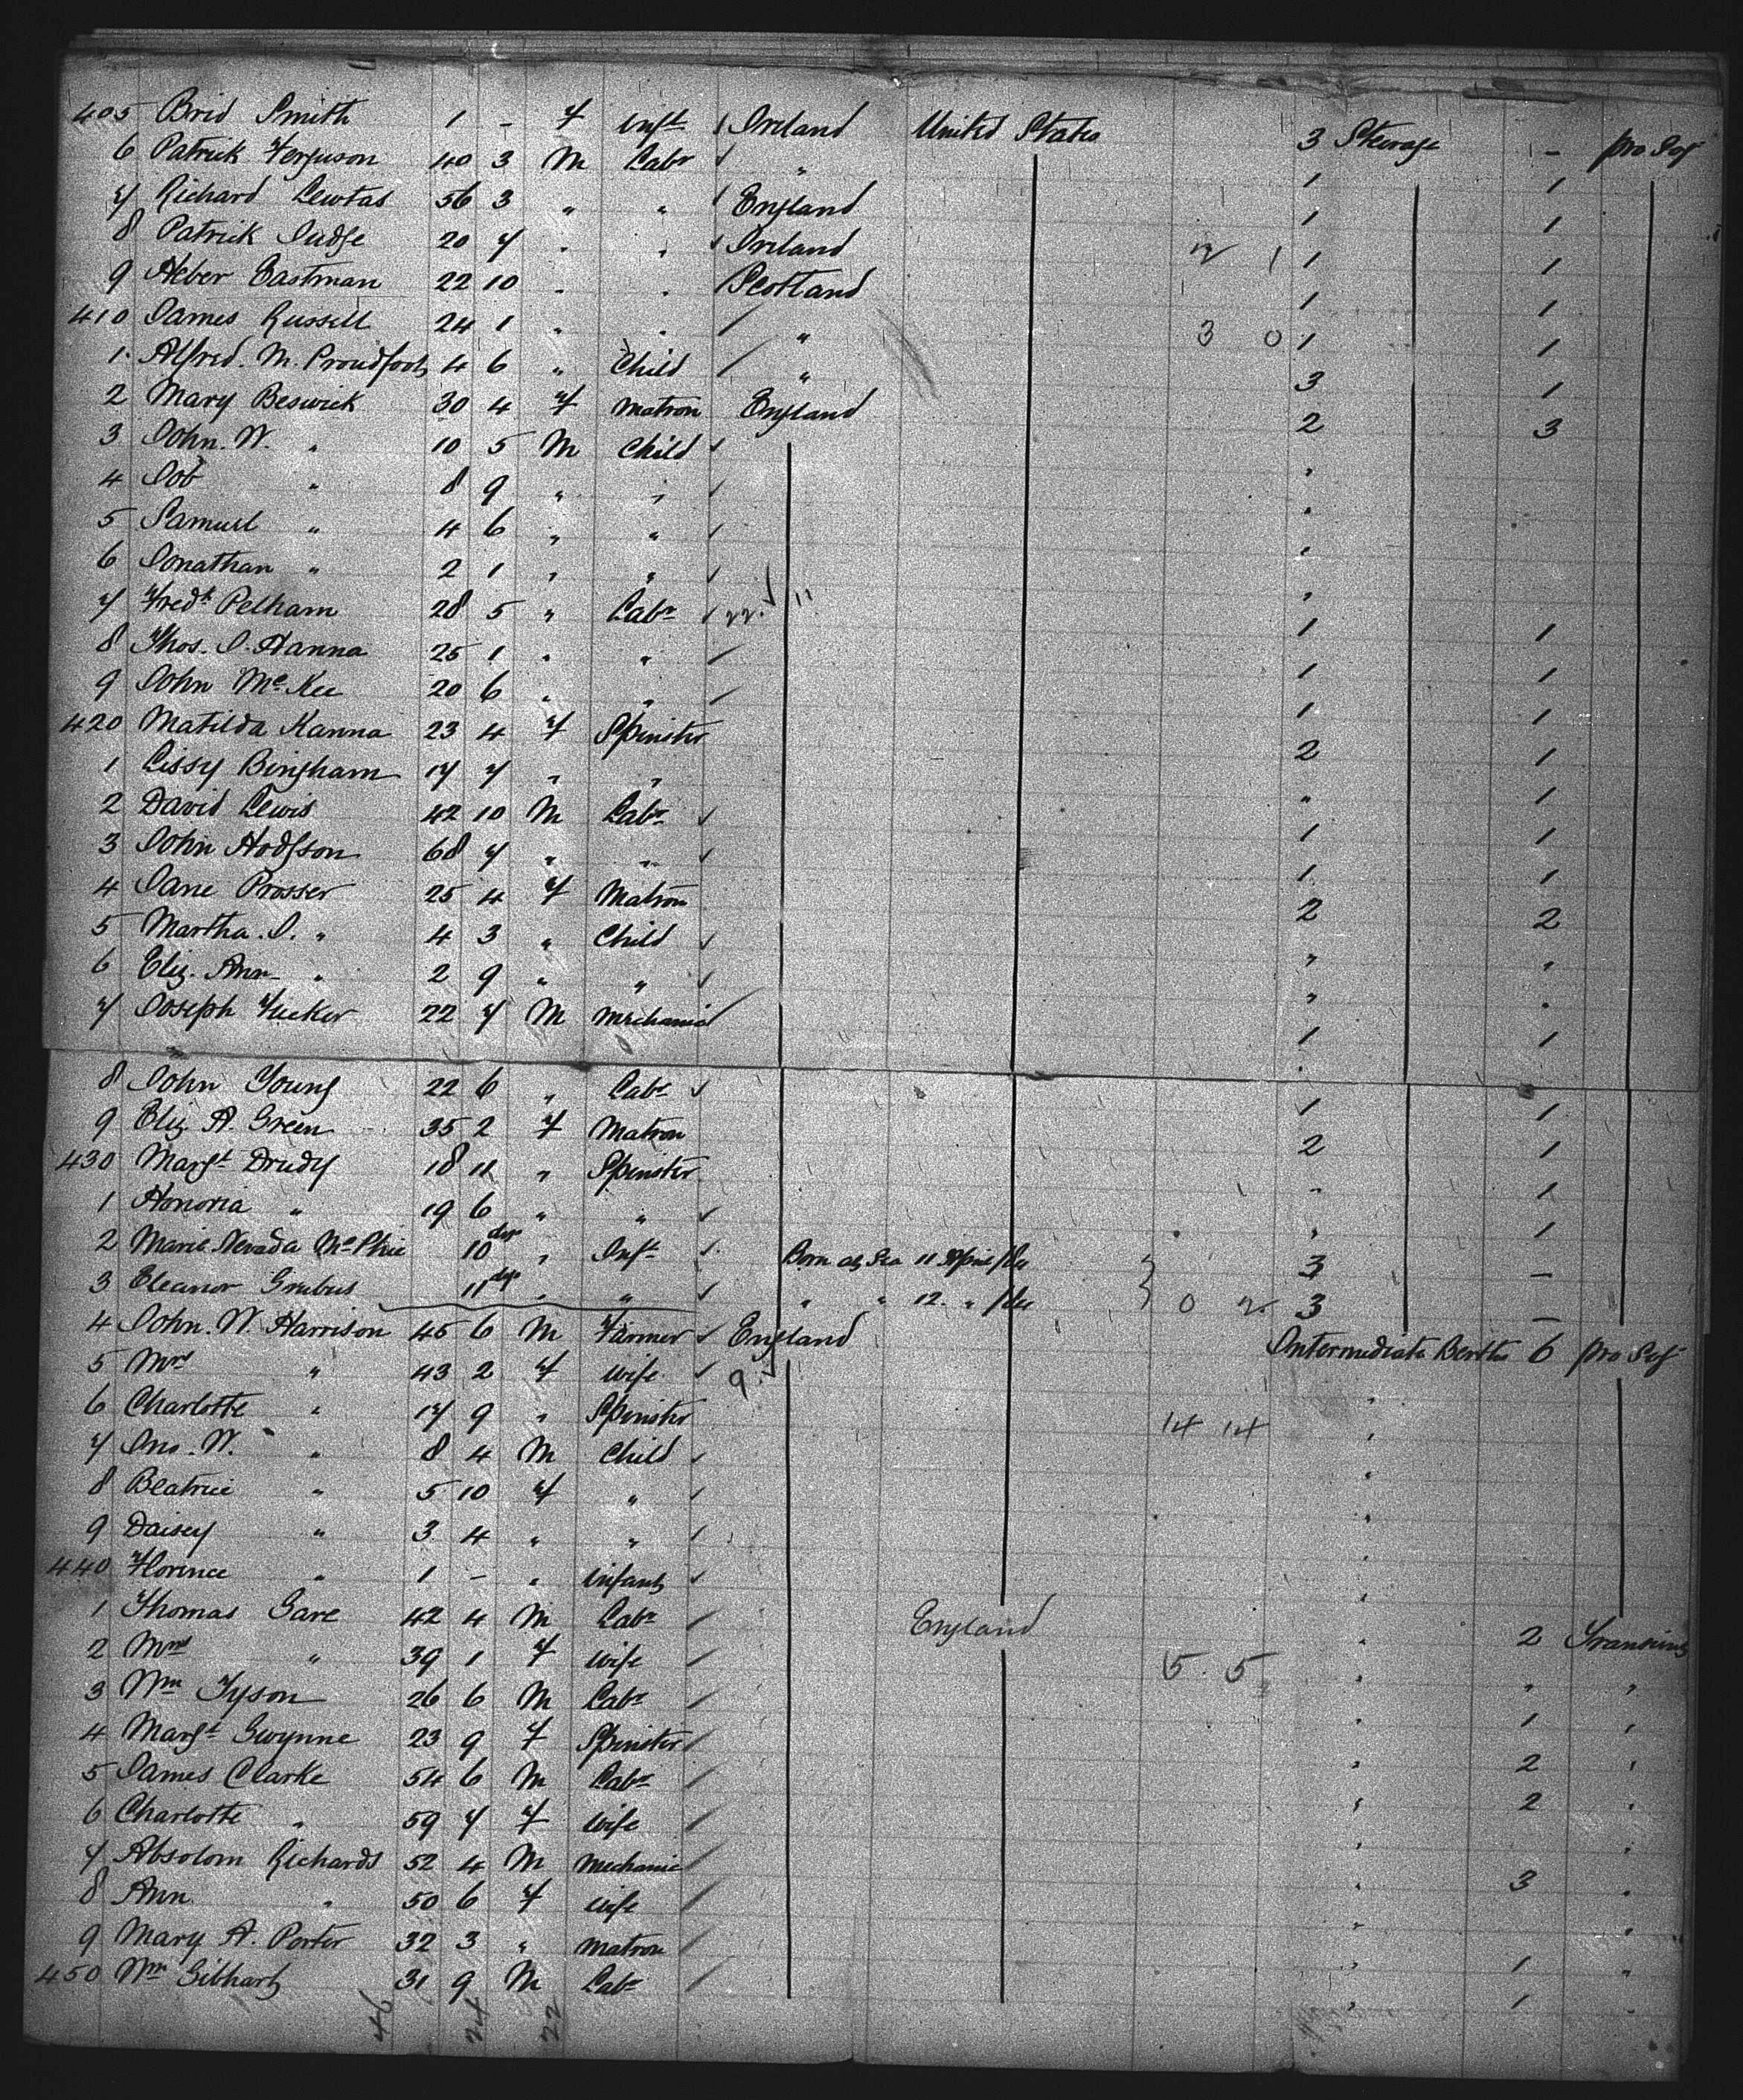 405 Brid Smith 1 - F Inft Ireland United States 3 Steerage - pro Sej
6 Patrick Ferguson 40 3 M Labr " 1 1
7 Richard Lewtas 56 3 " " England 1 1
8 Patrick Judge 20 7 " " Ireland 1 1
9 Heber Eastman 22 10 " " Scotland 1 1
410 James Russell 24 1 " " " 3 0 1 1
1 Alfred. M. Proudfoot 4 6 " Child " 3 1
2 Mary Beswick 30 4 F Matron England 2 3
3 John. W. " 10 5 M Child "
4 Job " 8 9 " " "
5 Samuel " 4 6 " " "
6 Jonathan " 2 1 " " "
7 Fredk Pelham 28 5 " Labr 22 11 1 1
8 Thos. J. Hanna 25 1 " " 1 1
9 John McKee 20 6 " " 1 1
420 Matilda Hanna 23 4 F Spinster 2 1
1 Lissy Bingham 17 7 " " " 1
2 David Lewis 42 10 M Labr 1 1
3 John Hodgson 68 7 " " 1 1
4 Jane Prosser 25 4 F Matron 2 2
5 Martha. J. " 4 3 " Child " "
6 Eliz. Ann " 2 9 " " " "
7 Joseph Tucker 22 7 M Mechanic 1 1
8 John Young 22 6 " Labr 1 1
9 Eliz A. Green 35 2 F Matron 2 1
430 Margt Drudy 18 11 " Spinster " 1
1 Honoria " 19 6 " " " 1
2 Marie Nevada McPhie 10 dys " Inft Born at Sea 11 April /84 3 -
3 Eleanor Grubus 11 dys " " " " 12. " /84 0 2 3 -
4 John. W. Harrison 45 6 M Farmer England Intermediate Berths 6 pro Sej
5 Mrs " 43 2 F Wife 9 "
6 Charlotte " 17 9 " Spinster 14 14 "
7 Jno. W. " 8 4 M Child "
8 Beatrice " 5 10 F " "
9 Daisey " 3 4 " " "
440 Florence " 1 - " Infant "
1 Thomas Gare 42 4 M Labr England " 2 Transient
2 Mrs " 39 1 F Wife 5. 5 " " "
3 Wm Tyson 26 6 M Labr " 1 "
4 Margt Gwynne 23 9 F Spinster " 2 "
5 James Clarke 54 6 M Labr " 2 "
6 Charlotte " 59 7 F Wife " "
7 Absolom Richards 52 4 M Mechanic " 3 "
8 Ann " 50 6 F Wife " "
9 Mary A. Porter 32 3 " Matron " 1 "
450 Wm Gibhart 31 9 M Labr " 1 "
46 24 22